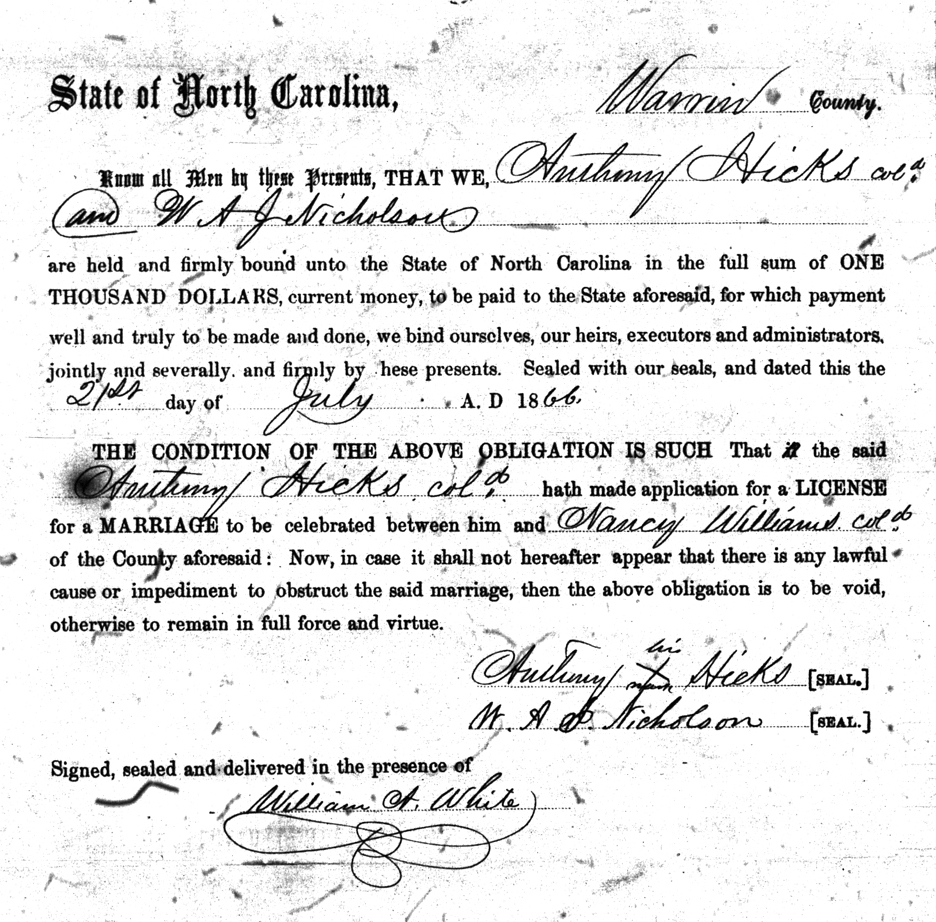 State of North Carolina, Warren County.
Know all Men by these Presents, THAT WE, Anthony Hicks cold.
and W A J Nicholson
are held and firmly bound unto the State of North Carolina in the full sum of ONE
THOUSAND DOLLARS, current money, to be paid to the State aforesaid, for which payment
well and truly to be made and done, we bind ourselves, our heirs, executors and administrators,
jointly and severally. and firmly by hese presents. Sealed with our seals, and dated this the
21st day of July A. D 1866.
THE CONDITION OF THE ABOVE OBLIGATION IS SUCH That the said
Anthony Hicks cold. hath made application for a LICENSE
for a MARRIAGE to be celebrated between him and Nancy Williams cold.
of the County aforesaid: Now, in case it shall not hereafter appear that there is any lawful
cause or impediment to obstruct the said marriage, then the above obligation is to be void,
otherwise to remain in full force and virtue.
his
Anthony X Hicks [SEAL.]
W. A. J. Nicholson [SEAL.]
Signed, sealed and delivered in the presence of
William A. White